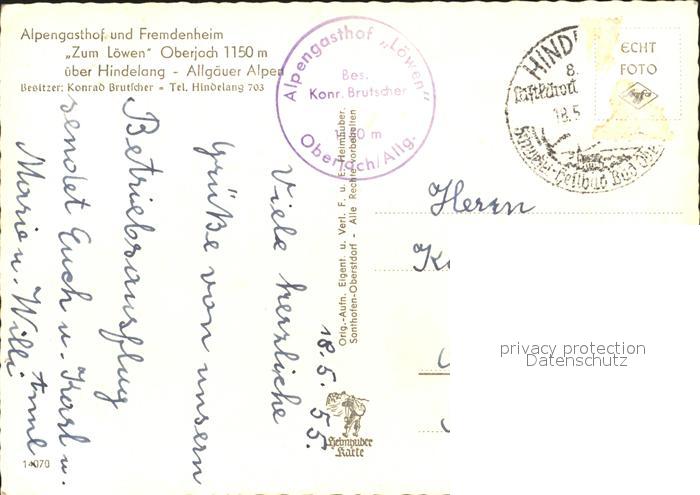 Alpengasthof und Fremdenheim
„Zum Löwen" Oberjoch 1150 m
über Hindelang - Allgäuer Alpen
Besitzer: Konrad Brutscher - Tel. Hindelang 703
Alpengasthof „Löwen"
Bes.
Konr. Brutscher
1150 m
Oberjoch/Allg.
HINDE
8.
Luftkurort
18.5
ECHT
FOTO
18. 5. 55.
Viele herzliche
Grüße von unserm
Betriebsausflug
sendet Euch u. Karl u.
Marie u. Willi Anne
Orig.-Aufn. Eigent. u. Verl. F. u. E. Heimhuber.
Sonthofen-Oberstdorf - Alle Rechte vorbehalten
Herrn
K
Heimhuber
Karte
14070
privacy protection
Datenschutz